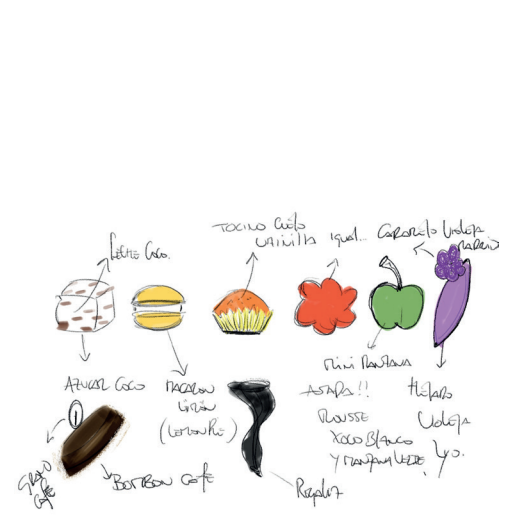 Leche Coco.
Tocino Cielo
Vainilla
igual...
Caramelo Violeta
Azucar Coco
Macaron
Limón
(Lemon Pie)
Mini Manzana
Asada!!
Mousse
Xoco Blanco
y Manzana Verde
Helado
Violeta
Lyo.
Grano
Cafe
Bombon Cafe
Regaliz